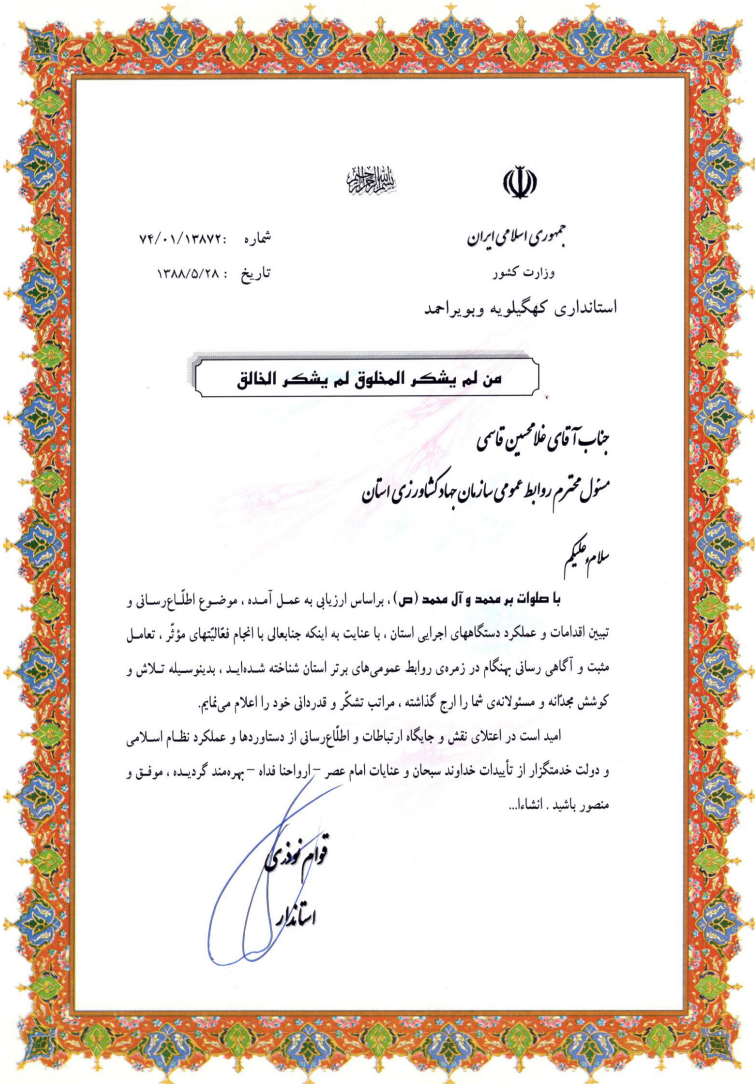 بسم الله الرحمن الرحیم
جمهوری اسلامی ایران
وزارت کشور
استانداری کهگیلویه وبویراحمد
شماره :۷۴/۰۱/۱۳۸۷۲
تاریخ : ۱۳۸۸/۵/۲۸
من لم یشکر المخلوق لم یشکر الخالق
جناب آقای غلامحسین قاسمی
مسئول محترم روابط عمومی سازمان جهاد کشاورزی استان
سلام علیکم
با صلوات بر محمد و آل محمد (ص) ، براساس ارزیابی به عمـل آمـده ، موضـوع اطلّـاع‌رسـانی و
تبیین اقدامات و عملکرد دستگاههای اجرایی استان ، با عنایت به اینکه جنابعالی با انجام فعّالیّتهای مؤثّر ، تعامـل
مثبت و آگاهی رسانی بهنگام در زمره‌ی روابط عمومی‌های برتر استان شناخته شـده‌ایـد ، بدینوسـیله تـلاش و
کوشش مجدّانه و مسئولانه‌ی شما را ارج گذاشته ، مراتب تشکّر و قدردانی خود را اعلام می‌نمایم.
امید است در اعتلای نقش و جایگاه ارتباطات و اطلّاع‌رسانی از دستاوردها و عملکرد نظـام اسـلامی
و دولت خدمتگزار از تأییدات خداوند سبحان و عنایات امام عصر –ارواحنا فداه – بهره‌مند گردیـده ، موفـق و
منصور باشید . انشاءا...
قوام نوذری
استاندار